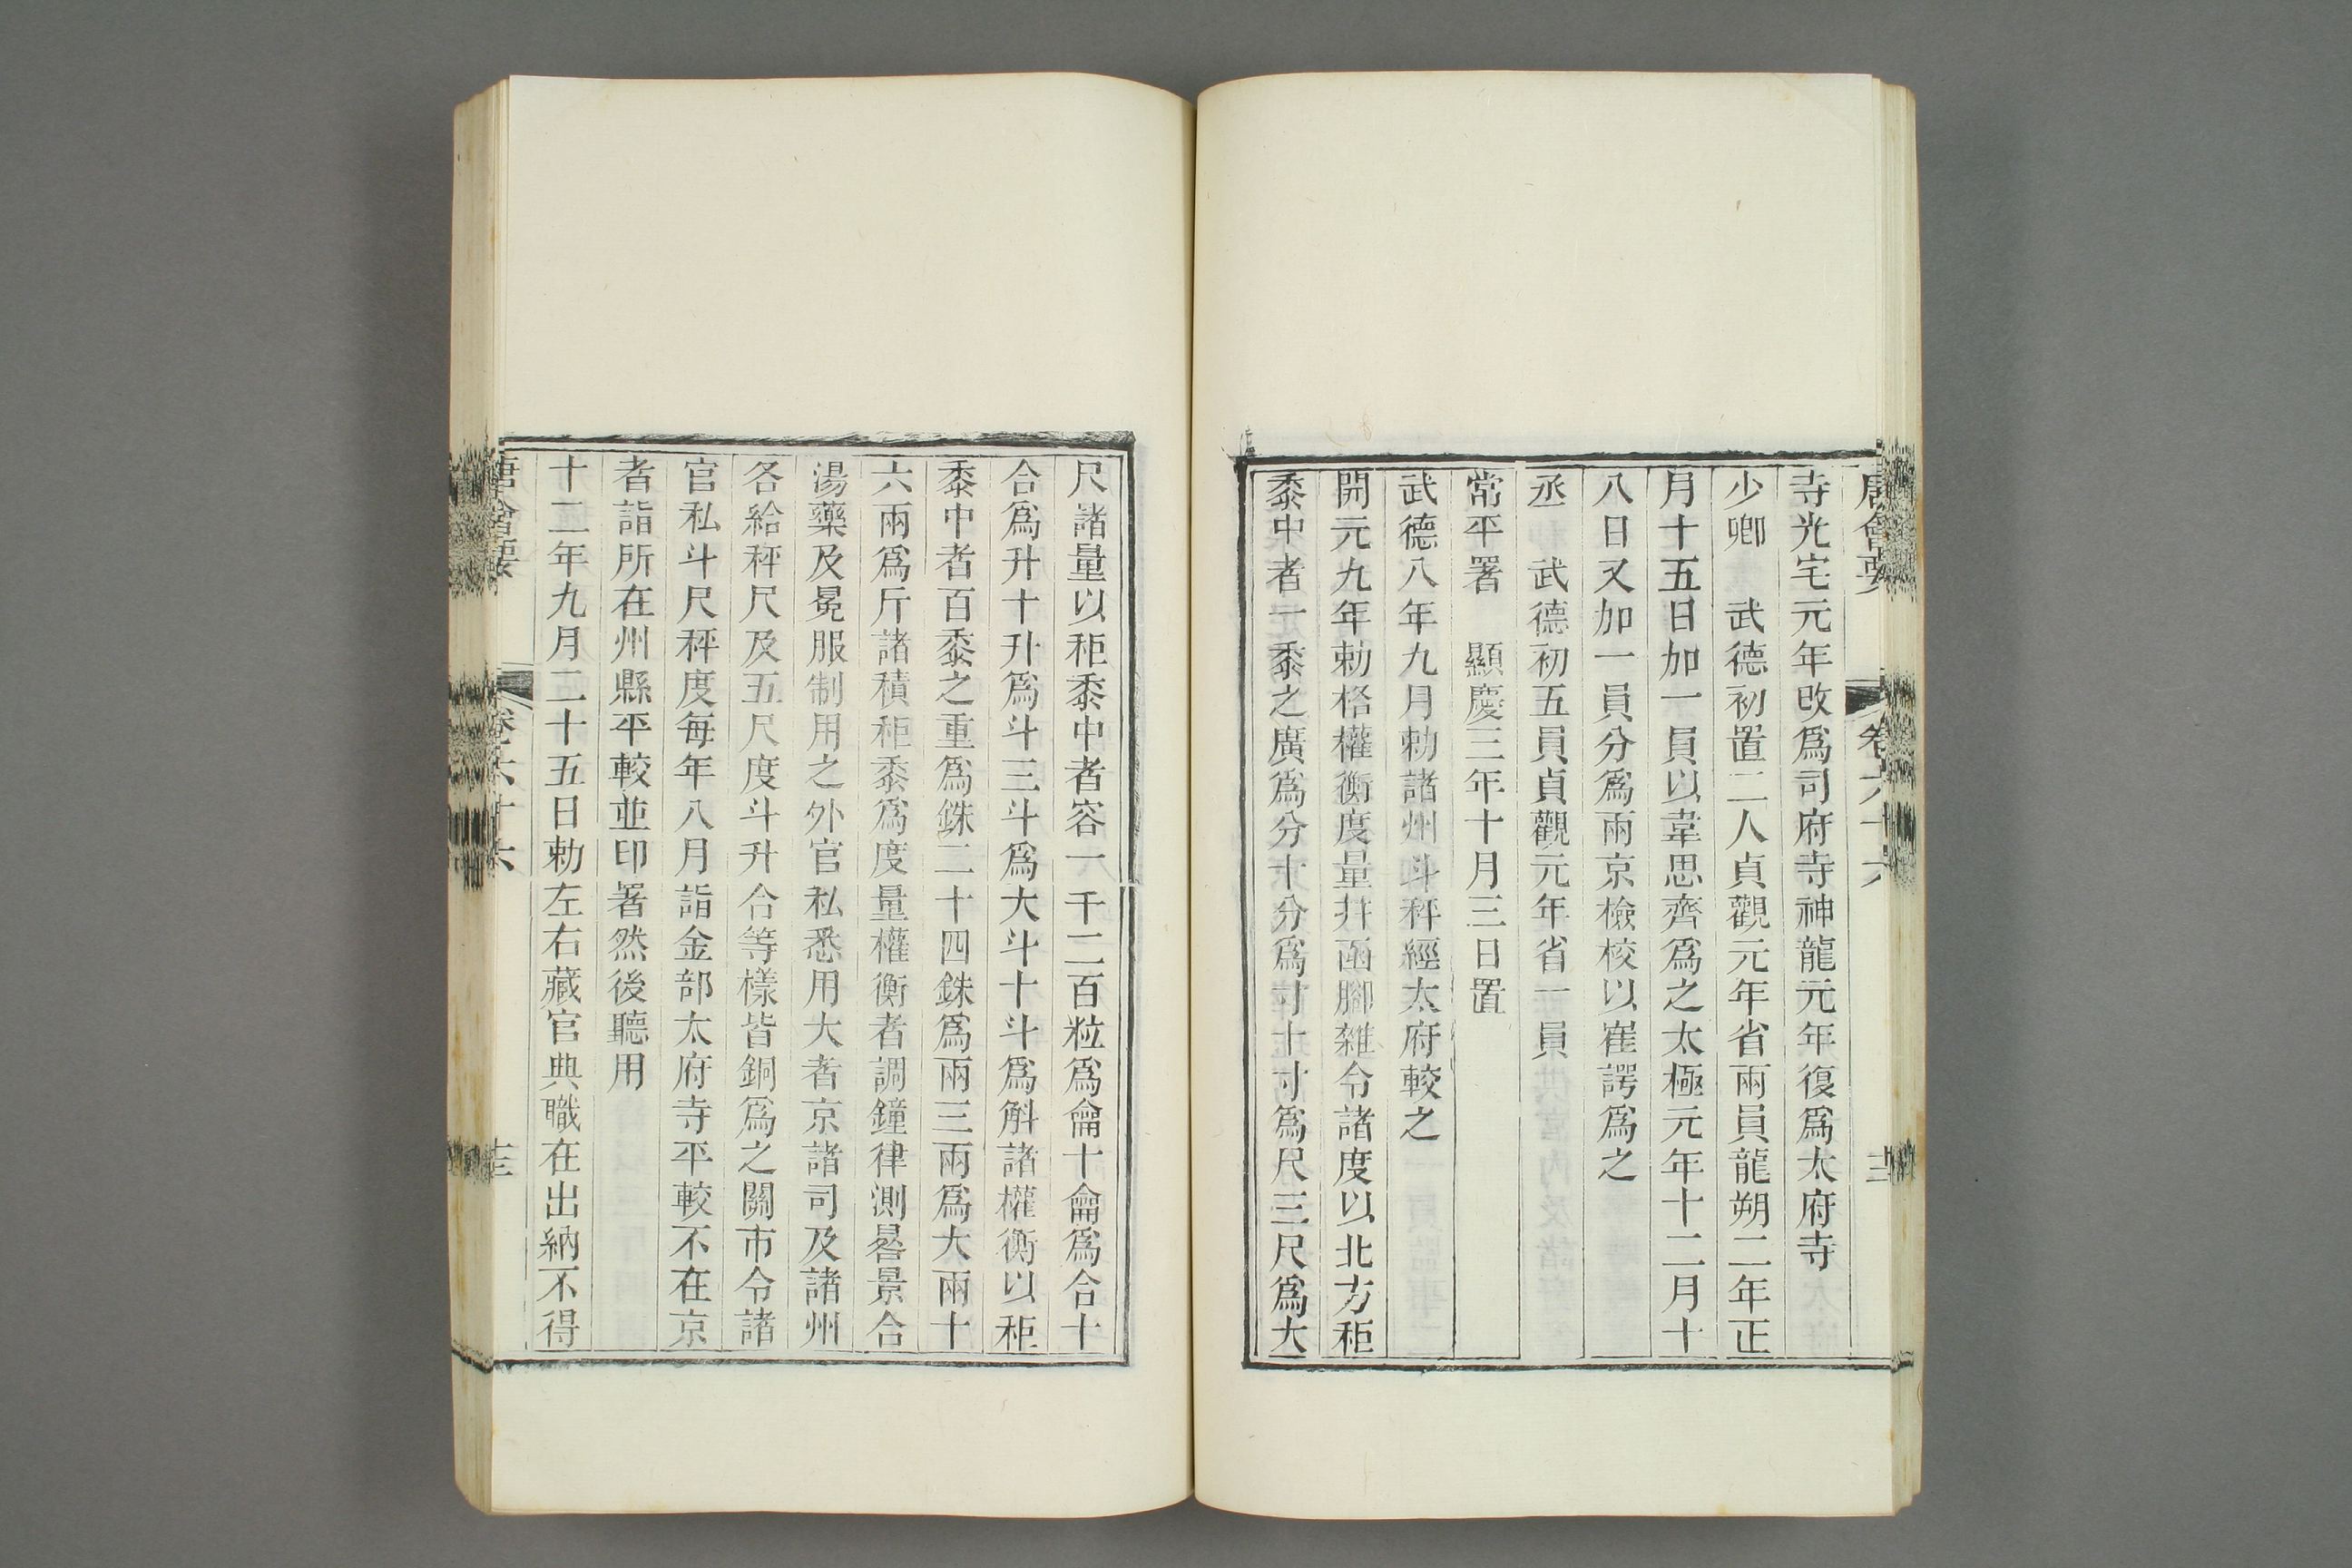 唐會要 卷六十六
寺光宅元年改爲司府寺神龍元年復爲太府寺
少卿 武德初置二人貞觀元年省兩員龍朔二年正
月十五日加一員以韋思齊爲之太極元年十二月十
八日又加一員分爲兩京檢校以崔諤爲之
丞 武德初五員貞觀元年省一員
常平署 顯慶三年十月三日置
武德八年九月勅諸州斗秤經太府較之
開元九年勅格權衡度量并函腳雜令諸度以北方秬
黍中者一黍之廣爲分十分爲寸十寸爲尺三尺爲大
尺諸量以秬黍中者容一千二百粒爲龠十龠爲合十
合爲升十升爲斗三斗爲大斗十斗爲斛諸權衡以秬
黍中者百黍之重爲銖二十四銖爲兩三兩爲大兩十
六兩爲斤諸積秬黍爲度量權衡者調鐘律測晷景合
湯藥及冕服制用之外官私悉用大者京諸司及諸州
各給秤尺及五尺度斗升合等樣皆銅爲之關市令諸
官私斗尺秤度每年八月詣金部太府寺平較不在京
者詣所在州縣平較並印署然後聽用
十二年九月二十五日勅左右藏官典職在出納不得
唐會要 卷六十六 十三